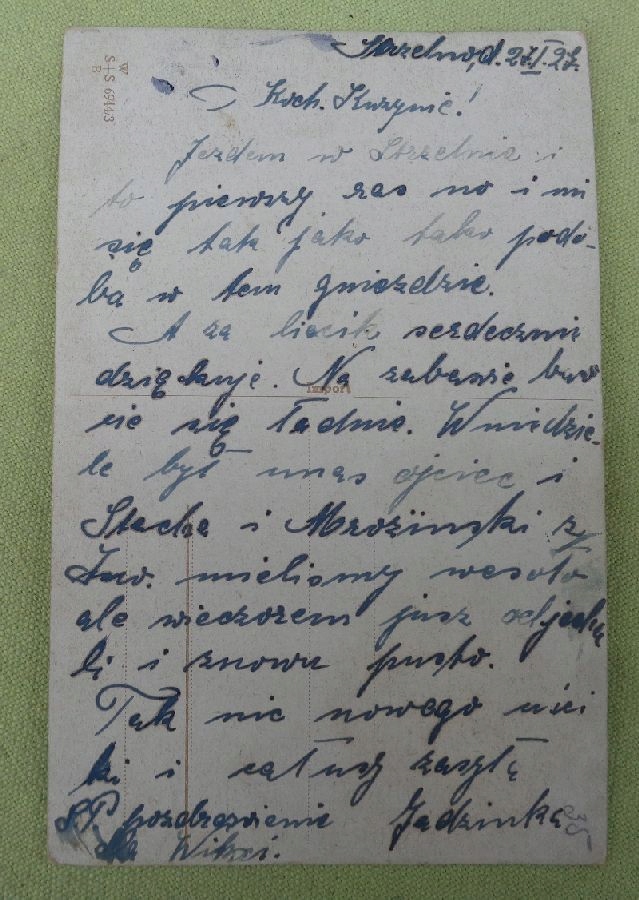 Strzelno, d. 27.I.27.
W
S+S 69143
B
Koch. Kuzynie!
Jezdem w Strzelnie i
to pierwszy raz no i mi
się tak jako tako podo-
ba w tem gnieździe.
A za liścik serdecznie
dziękuje. Na zabawie baw
się ładnie. W niedzie-
le był unas ojciec i
Import
Stacha i Mroziński z
Inw. mieliśmy wesoło
ale wieczorem jusz odjecha
li i znowu pusto.
Tak nic nowego uści
ki i całusy zasyła
pozdrowienie Jadzinka
dla Witusi.
35